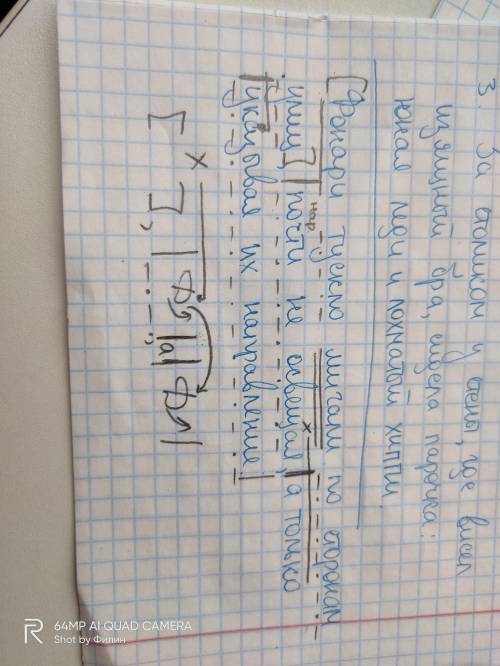 3. За столиком у стены, где висел
изящный бра, сидела парочка:
юная леди и лохматой хиппи.
[Фонари тускло мигали по сторонам
нар
улиц], | почти не освещая |, а только
| указовая их направление |
[ х ], | Ф |, |а| Ф |
64MP AI QUAD CAMERA
Shot by Филин